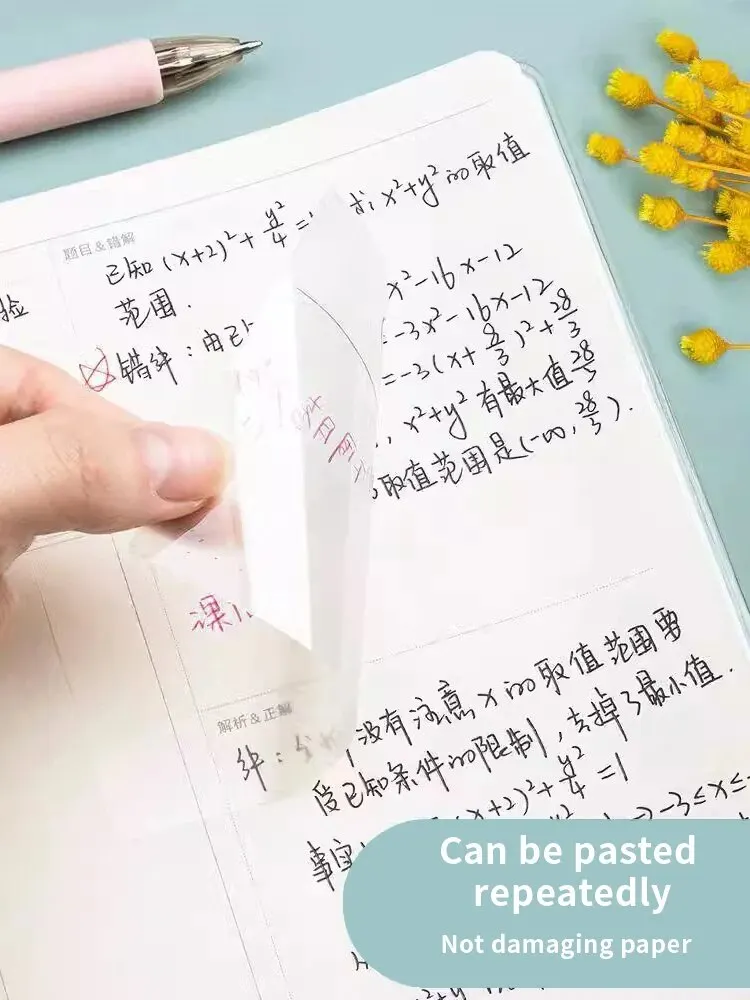 题目&错解
已知(x+2)²+y²/4=1 求x²+y²的取值
范围.
验
x²-16x-12
错解：由已
=-3x²-16x-12
=-3(x+8/3)²+28/3
x²+y²有最大值28/3
取值范围是(-∞,28/3).
课
解析&正解
解：分析
没有注意x的取值范围要
受已知条件的限制，丢掉了最小值.
事实
(x+2)²+y²/4=1
-3≤x≤-
Can be pasted
repeatedly
Not damaging paper